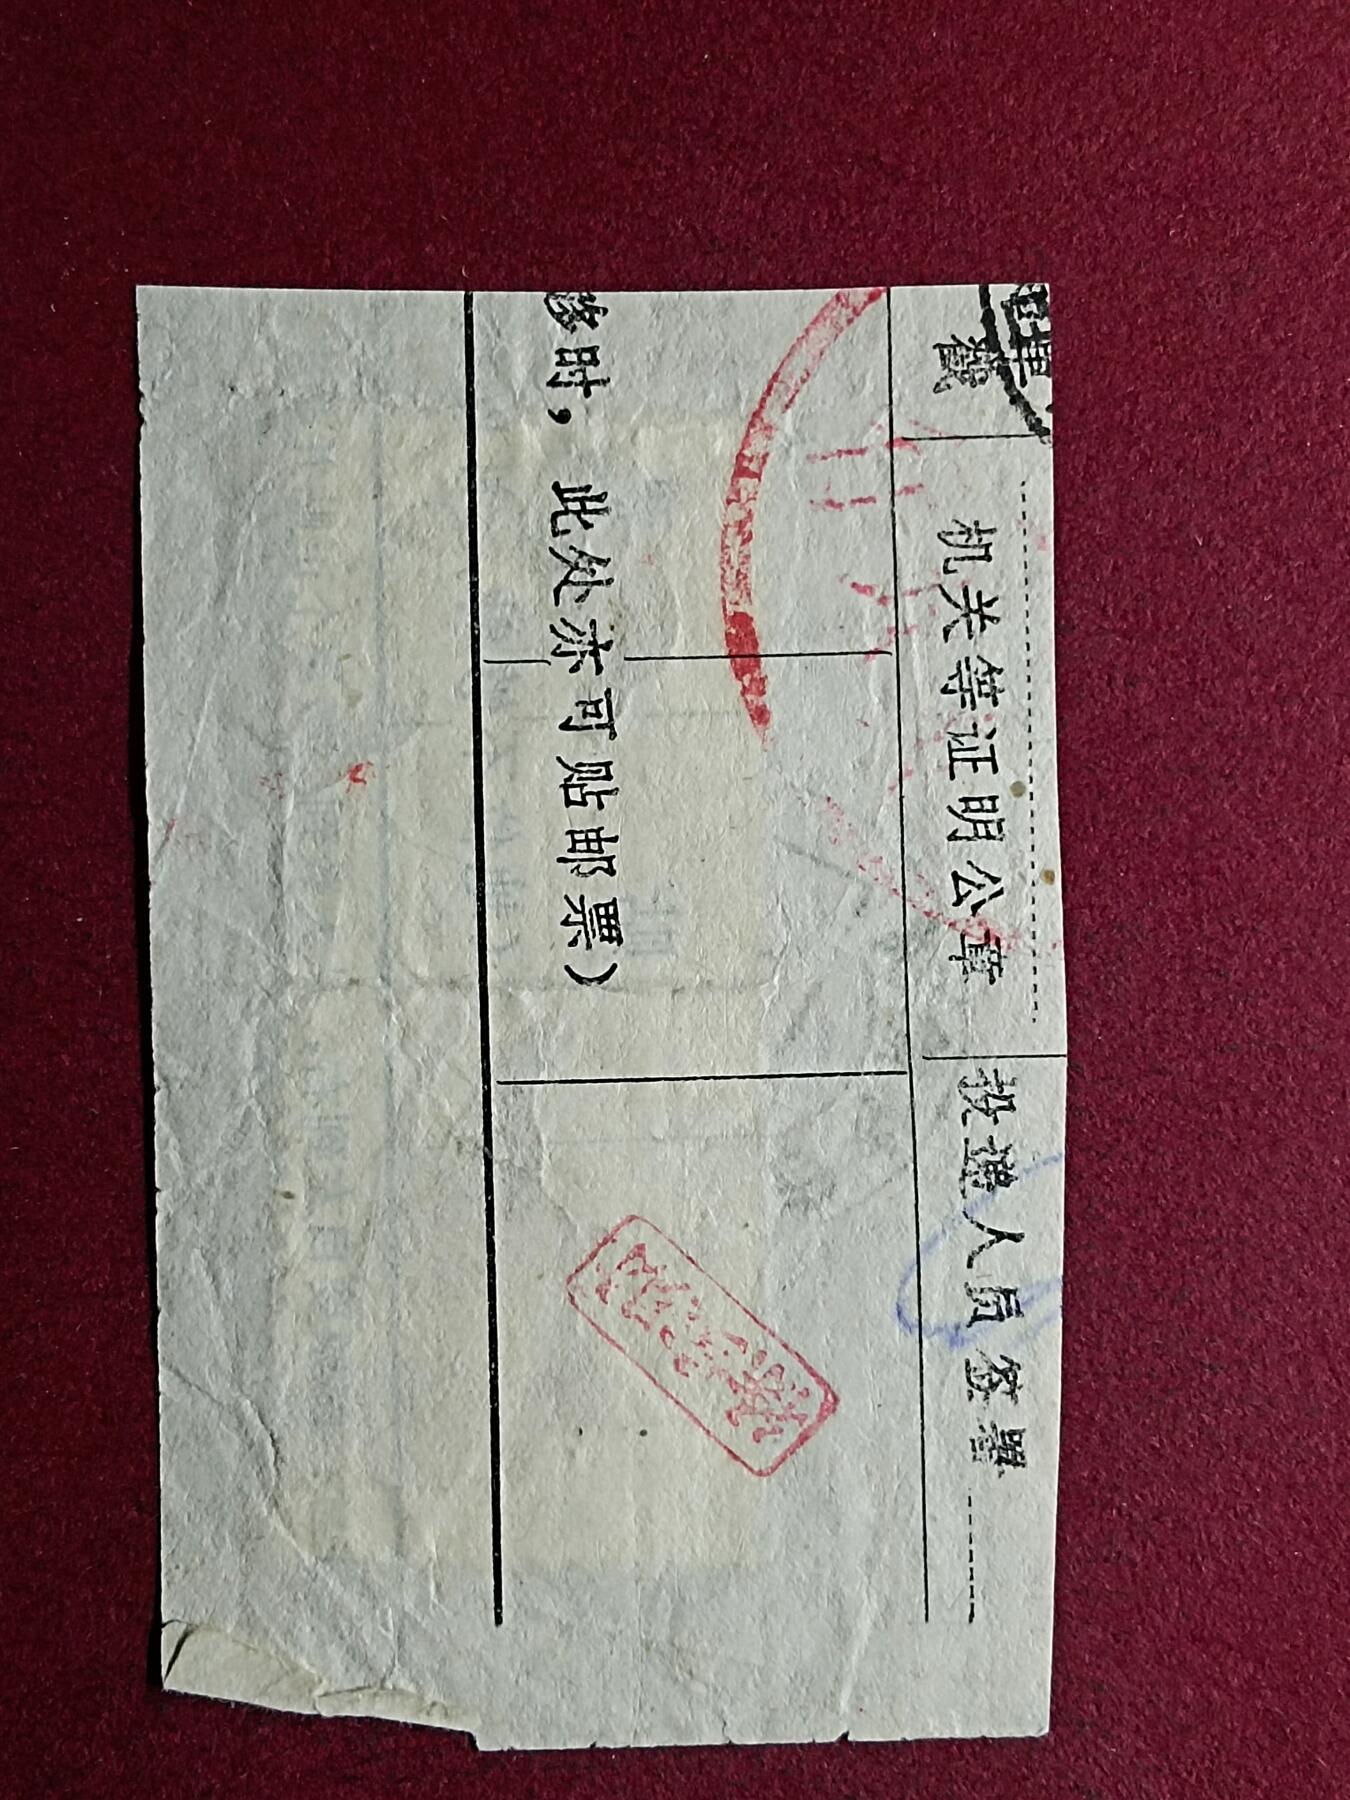 戳 机关等证明公章 投递人员签署
时，此处亦可贴邮票）